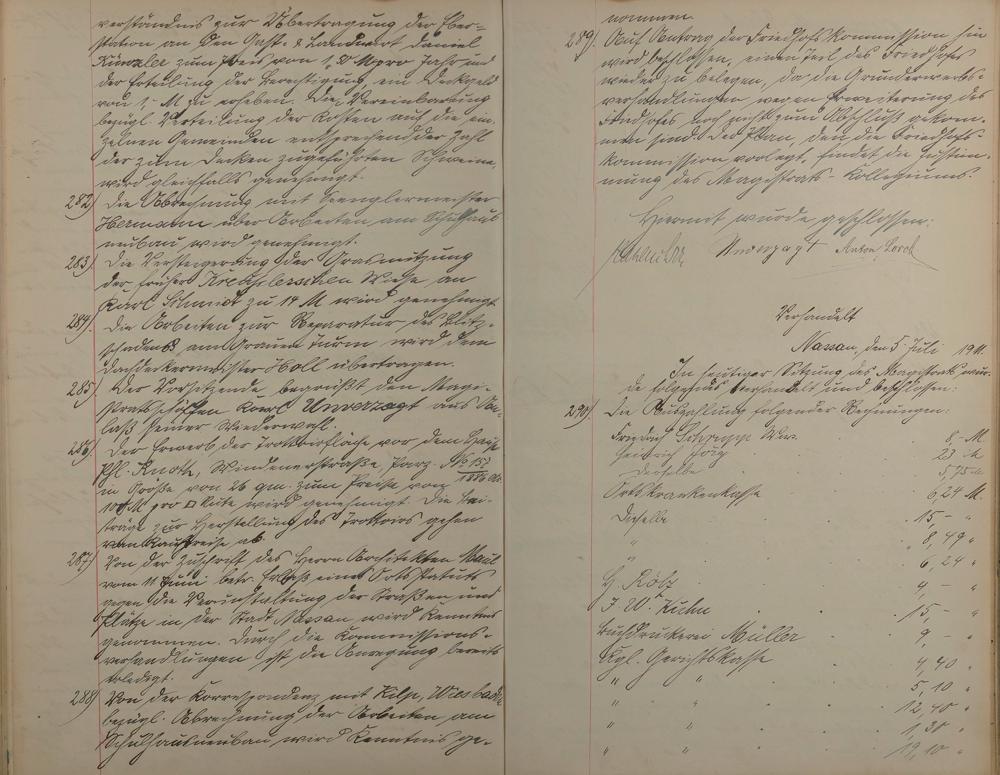 verständnis zur Übertragung der Eber-
station an den Gast- & Landwirt, Daniel
Künzler zum Preis von 1,50 M pro Jahr und
der Erteilung der Berechtigung ein Deckgeld
von 1,- M zu erheben. Die Vereinbarung
bezügl. Verteilung der Kosten auf die ein-
zelnen Gemeinden entsprechend der Zahl
der zum Decken zugeführten Schweine,
wird gleichfalls genehmigt.
282) Die Abrechnung mit Spenglermeister
Hermann über Arbeiten am Schulhaus
neubau wird genehmigt.
283) Die Versteigerung der Grasnutzung
der früher Wiese an
Karl Schmidt zu 14 M wird genehmigt
284) Die Arbeiten zur Reparatur des Blitz-
schadens am Grauen Turm wird dem
Dachdeckermeister Holl übertragen.
285) Der Vorsitzende begrüßt den Magi-
stratsschöffen Karl Unverzagt aus An-
laß seiner Wiederwahl.
286) Der Erwerb der Trottoirfläche vor dem Hause
Phl. Knoth, Windenerstraße, Parz. No 153
in Größe von 26 qm. zum Preise von
100 M pro □ Rute wird genehmigt. Die Bei-
träge zur Herstellung des Trottoirs gehen
vom Kaufpreise ab.
287) Von der Zuschrift des Herrn Architekten Maul
vom 11 Juni betr. Erlaß eines Ortsstatuts
gegen die Verunstaltung der Straßen und
Plätze in der Stadt Nassau wird Kenntnis
genommen. Durch die Kommissions-
verhandlungen ist die Anregung bereits
erledigt.
288) Von der Korrespondenz mit Hilse, Wiesbaden
bezügl. Abrechnung der Arbeiten am
Schulhausneubau wird Kenntnis ge-
nommen.
289) Auf Antrag der Friedhofskommission hin
wird beschlossen, einen Teil des Friedhofs
wieder zu belegen, da die Grunderwerbs-
verhandlungen wegen Erweiterung des
Friedhofes noch nicht zum Abschluß gekom-
men sind. Der Plan, den die Friedhofs-
kommission vorlegt, findet die Zustim-
mung des Magistrats-Kollegiums.
Hiermit wurde geschlossen:
Hasenclever Unverzagt Anton Lorch
Verhandelt
Nassau, den 5 Juli 1911.
In heutiger Sitzung des Magistrats wur-
de folgendes verhandelt und beschlossen:
290) Die Auszahlung folgender Rechnungen:
Friedrich Schrupp Ww. 8,- M.
Heinrich Jörg 23 M
Derselbe 5,75 M
Ortskrankenkasse 6,24 M.
Dieselbe 15,- "
" 8,49 "
" 6,24 "
H. Kölz 4,- "
J. W. Kuhn 15,- "
Buchdruckerei Müller 9,- "
Kgl. Gerichtskasse 4,40 "
" " 5,10 "
" " 12,40 "
" " 1,30 "
" " 19,10 "